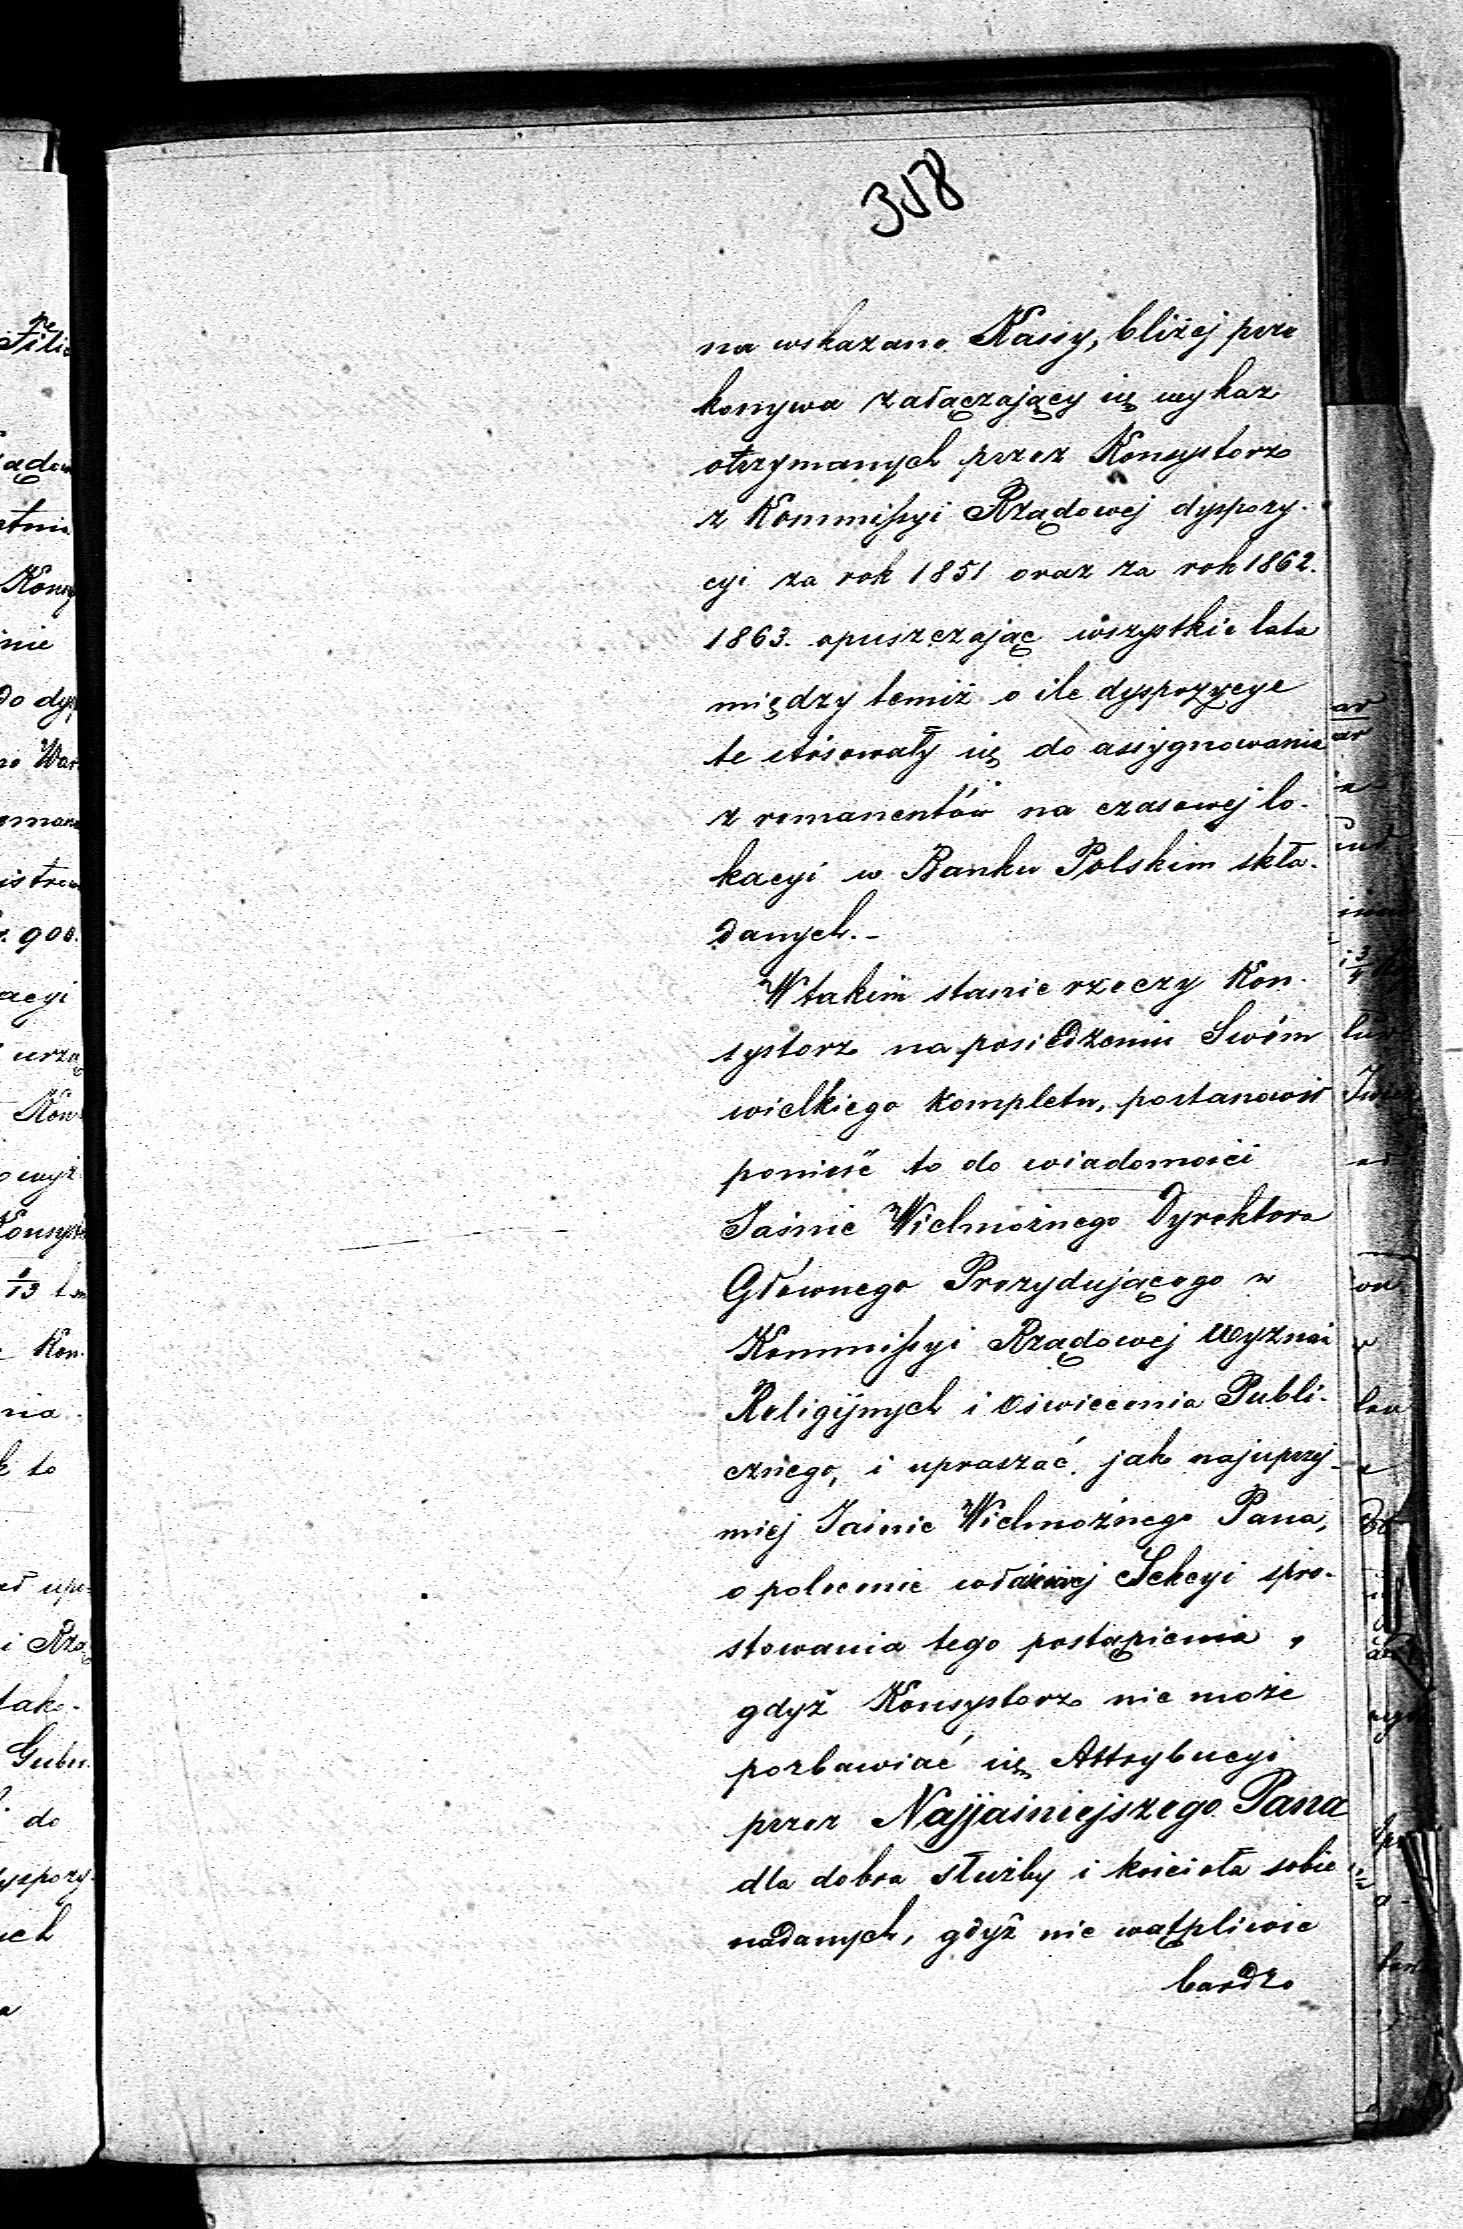 318
na wskazane Kassy, bliżej prze
konywa załączający się wykaz
otrzymanych przez Konsystorz
z Kommissyi Rządowej dyspozy-
cyi za rok 1851 oraz za rok 1862.
1863. opuszczając wszystkie lata
między temiż o ile dyspozycye
te stósowały się do assygnowania
z remanentów na czasowej lo-
kacyi w Banku Polskim skła-
danych.-
W takim stanie rzeczy Kon-
systorz na posiedzeniu Swém
wielkiego kompletu, postanowił
ponieść to do wiadomości
Jaśnie Wielmożnego Dyrektora
Głównego Prezydującego w
Kommissyi Rządowej Wyznań
Religijnych i Oświecenia Publi-
cznego, i upraszać jak najuprzej-
miej Jaśnie Wielmożnego Pana,
o polecenie właściwej Sekcyi spro-
stowania tego postąpienia,
gdyż Konsystorz nie może
pozbawiać się Attrybucyi
przez Najjaśniejszego Pana
dla dobra służby i kościoła sobie
nadanych, gdyż nie wątpliwie
bardzo